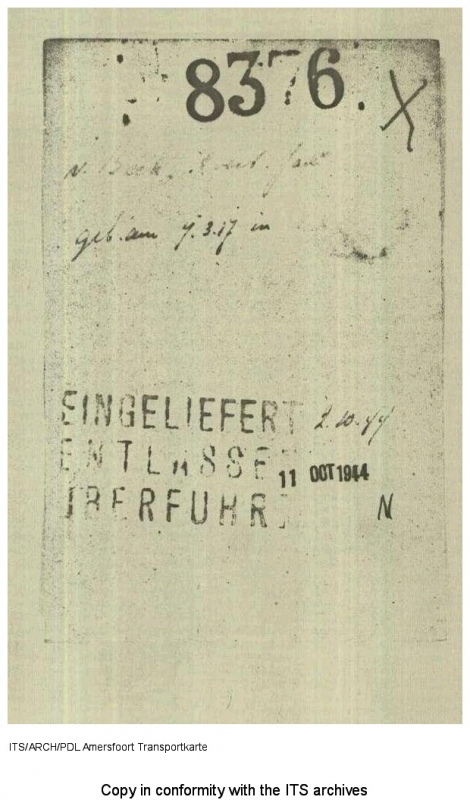 8376. X
v. Beek,
geb. am 7.3.17 in
EINGELIEFERT 2.10.44
ENTLASSE 11 OCT 1944
ÜBERFUHRT N
ITS/ARCH/PDL Amersfoort Transportkarte
Copy in conformity with the ITS archives